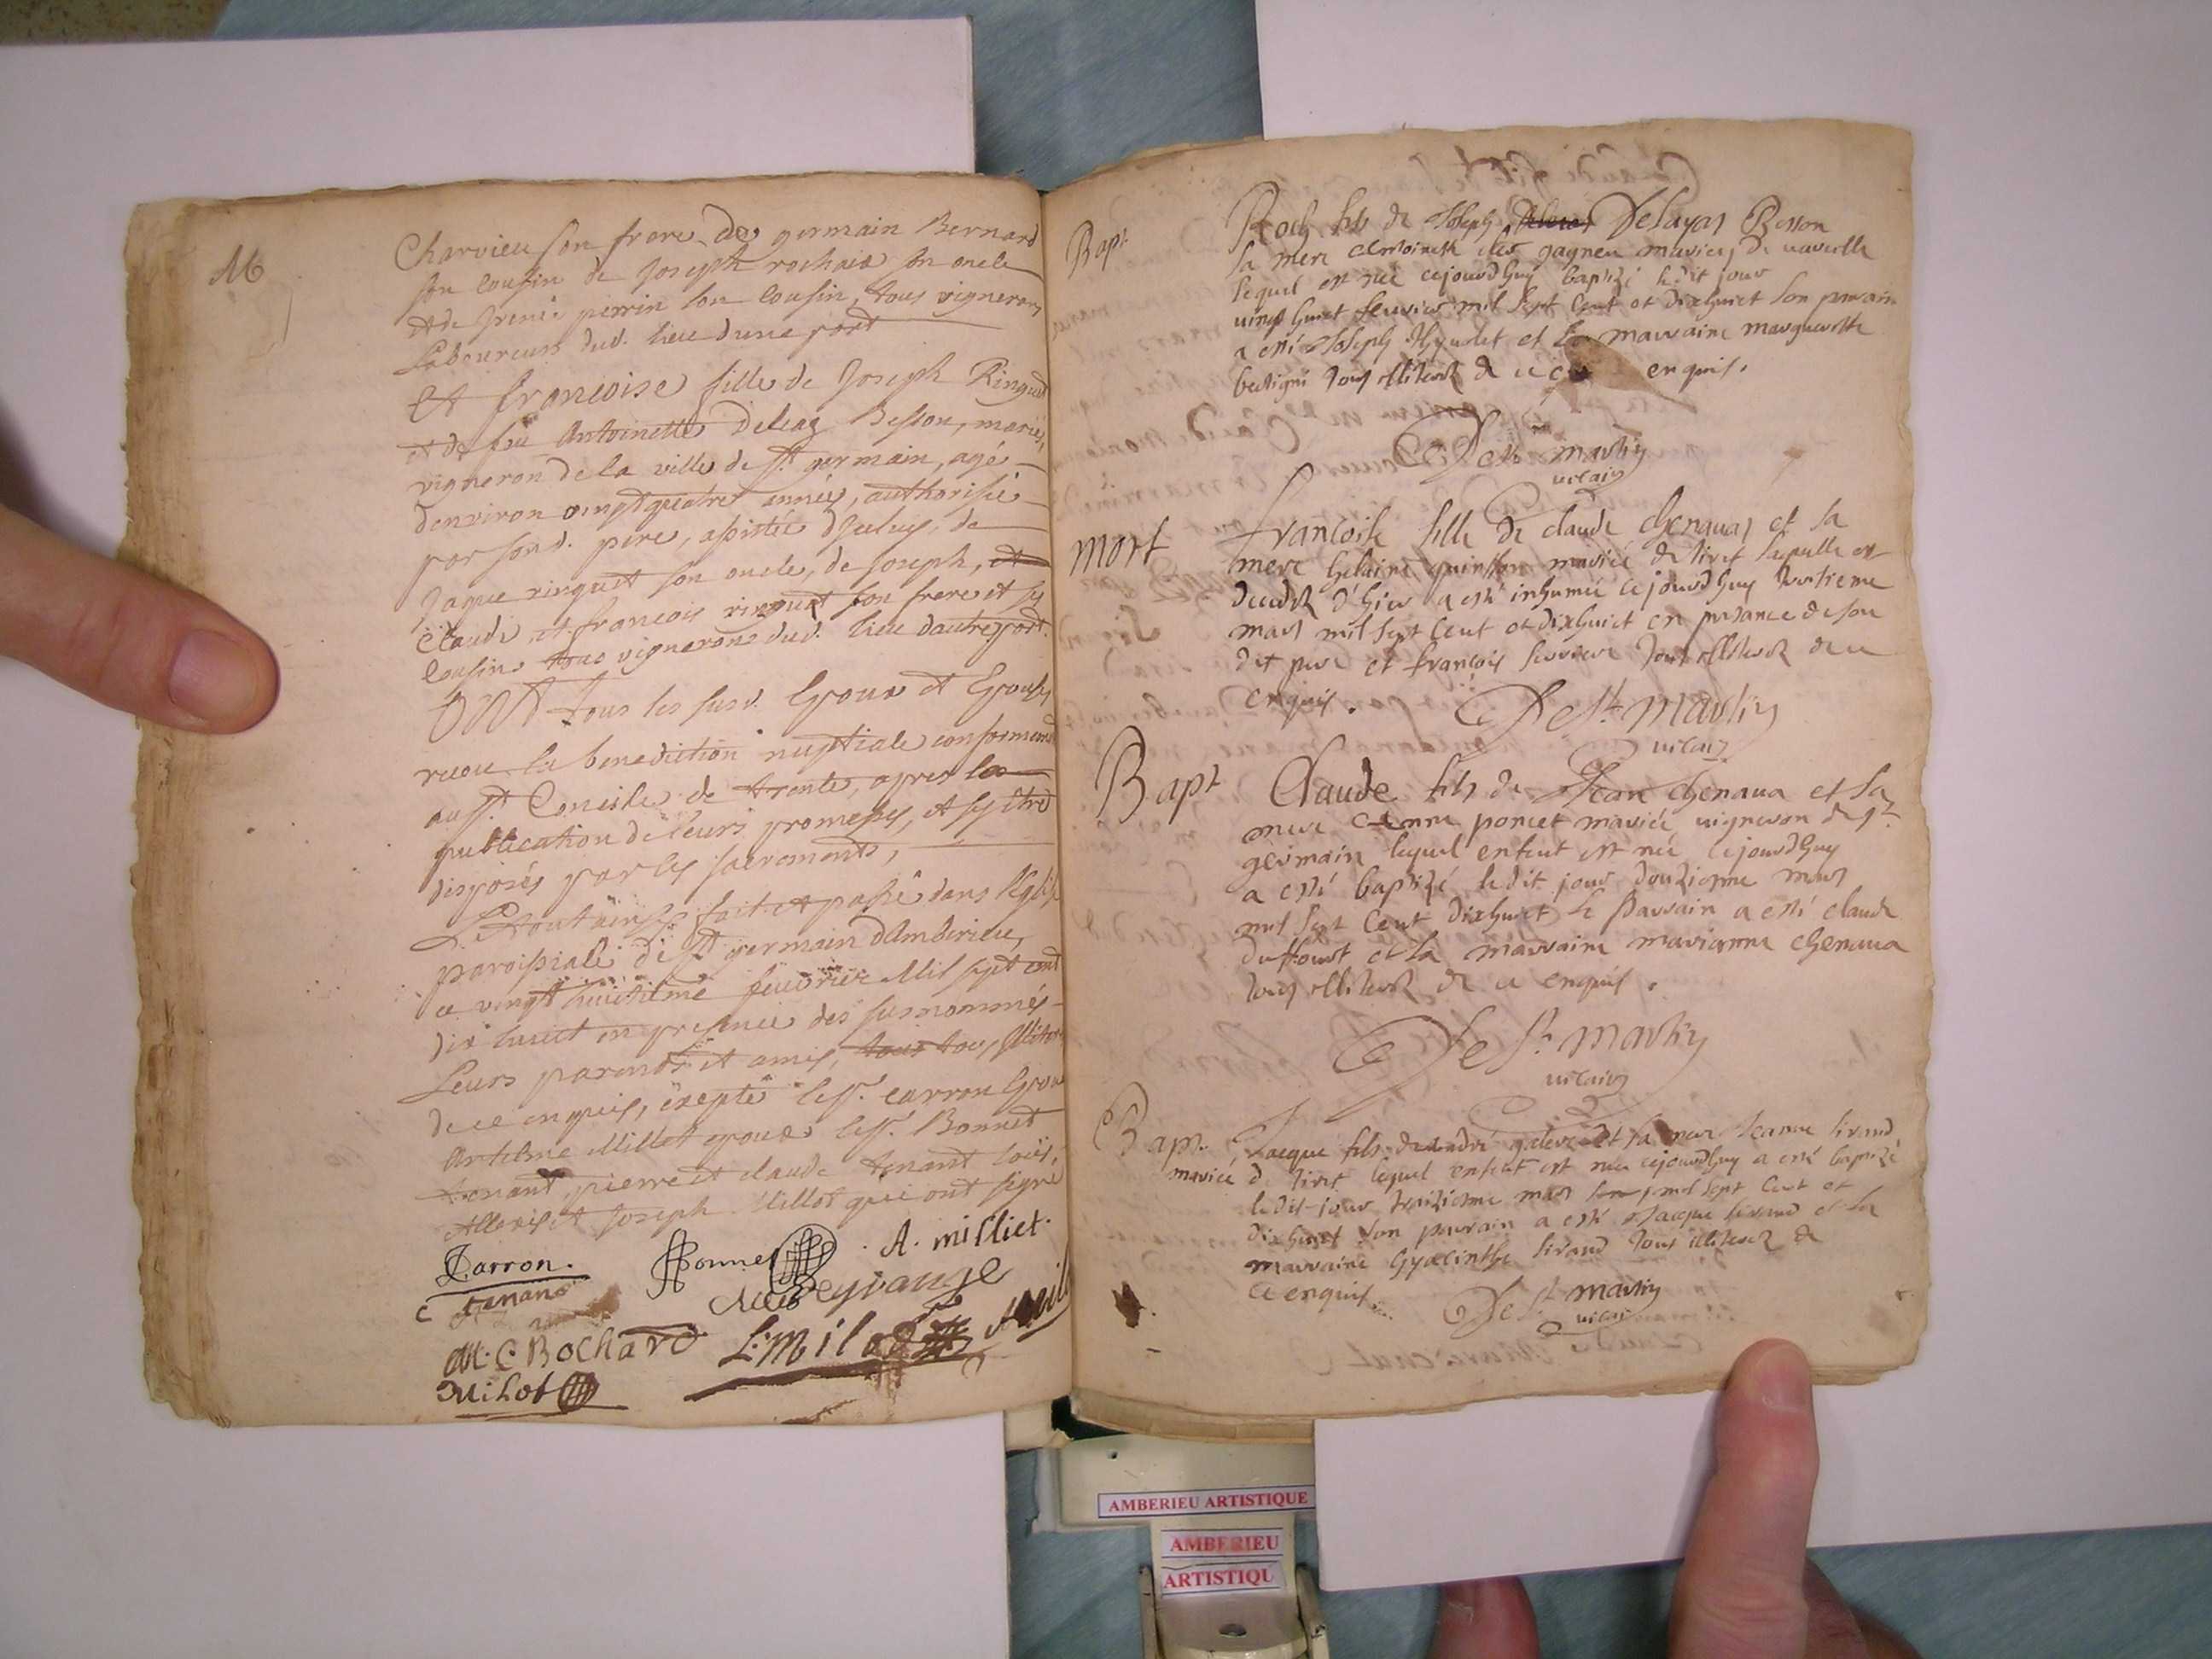 M
Charvieu son frere, de germain Bernard
son cousin de Joseph rochaix son oncle
et de perrin son cousin, tous vignerons
Laboureurs dud. lieu d'une part
Et francoise fille de Joseph Ringuet
et de feu Antoinette Deleaz Besson, mariés,
vigneron de la ville de St. germain, agée
denviron vingtquatre année, authorisée
par sond. pere, assistée d'Iceluy, de
Jaque ringuet son oncle, de Joseph, et
Claude et francois ringuet son frere et ses
cousins tous vignerons dud. lieu dautre part.
ONT tous les susd. Epoux et Epouses
receu la benediction nuptiale conformem
au St. Concile de trente, apres la
publication de leurs promesses, et s'estre
disposés par les sacrements,
Le tout ainsy fait et passé dans l'Eglise
paroissiale de St. germain d'Amberieu,
ce vingt huictieme feuvrier Mil sept cent
dix huict en presence des susnommés
Leurs parents et amis, tous tous Illiteres
de ce enquis, exepté le Sr. Carron Epoux
Antelme Millet epoux le Sr. Bonnet
tenant, pierre et claude tenant
Allexis et Joseph Millot qui ont signé
Carron.
Bonnet
A. milliet.
C tenant
Beyrauge
M. C Bochard
L. Milod
Milot
Bapt
Roch fils de Joseph Delayas Besson
sa mere Antoinette gagneu mariés de vareille
lequel est née cejourdhuy baptizé ledit jour
vingt huict feuvrier mil sept cent et dixhuict son parrain
a esté Joseph et la marraine marguerite
tous illiterés de ce enquis.
De St. martin
vicaire
mort
francoise fille de claude chenavas et sa
mere helaine quinsson mariée de tiret laquelle est
decedée d'hier a esté inhumée cejourdhuy
mars mil sept cent et dixhuict en presance de son
dit pere et françois tous illiterés de ce
enquis.
De St. martin
vicaire
Bapt
Claude fils de Jean chenava et sa
mere Anne poncet mariée vigneron de St.
germain lequel enfent est née cejourdhuy
a esté baptizé ledit jour douziesme mars
mil sept cent dixhuict le parrain a esté claude
duffourt et la marraine marianne chenava
tous illiterés de ce enquis.
De St. martin
vicaire
Bapt.
Jacque fils de andré et sa mere Jeanne sirand
mariée de tiret lequel enfent est née cejourdhuy a esté baptizé
ledit jour treiziesme mars mil sept cent et
dixhuict son parrain a esté Jacque sirand et la
marraine hyacinthe sirand tous illiterés de
ce enquis.
De St. martin
vicaire
AMBERIEU ARTISTIQUE
AMBERIEU
ARTISTIQU